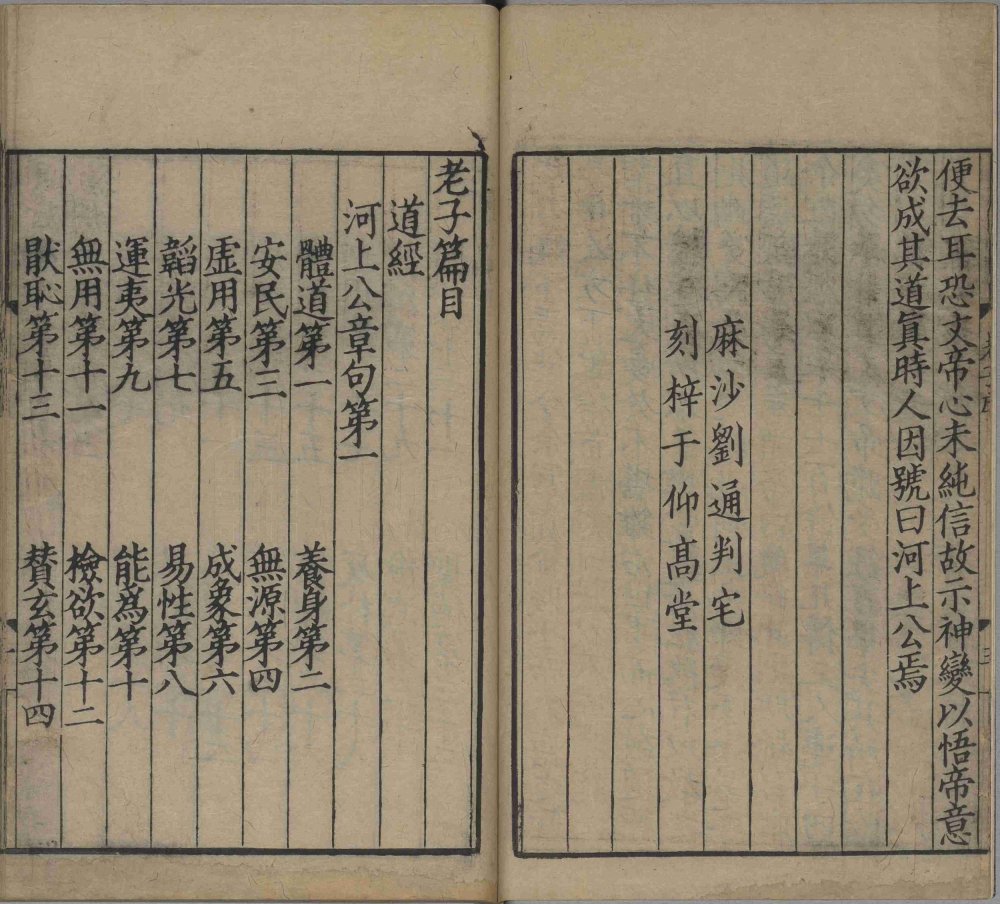 便去耳恐文帝心未純信故示神變以悟帝意
欲成其道眞時人因號曰河上公焉
麻沙劉通判宅
刻梓于仰髙堂
老子篇目
道經
河上公章句第一
體道第一 養身第二
安民第三 無源第四
虛用第五 成象第六
韜光第七 易性第八
運夷第九 能爲第十
無用第十一 檢欲第十二
猒恥第十三 贊玄第十四